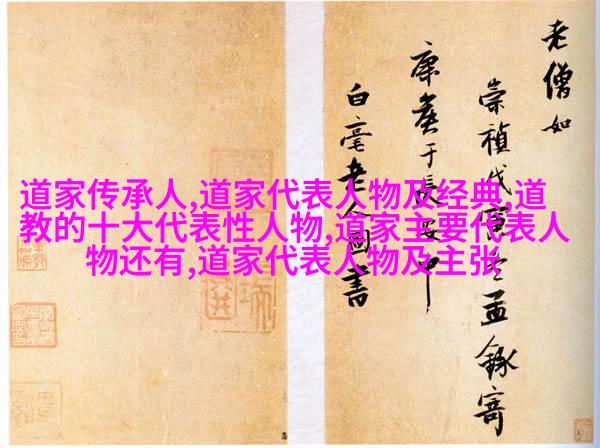 道家传承人,道家代表人物及经典,道
教的十大代表性人物,道家主要代表人
物还有,道家代表人物及主张
老僧如
崇禎戊寅冬孟錄寄
康侯于長安中
白毫老人圖書